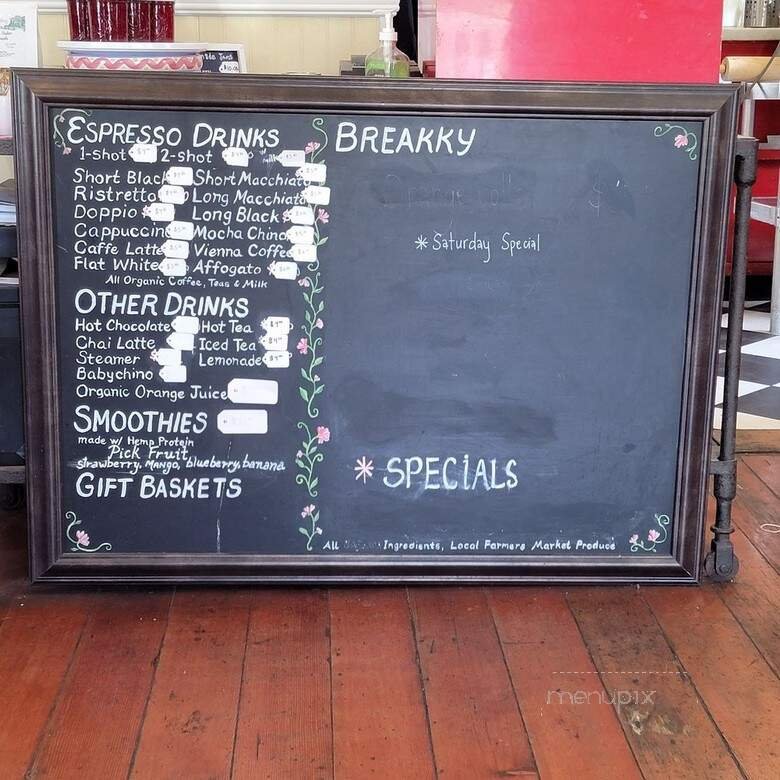 ESPRESSO DRINKS
1-shot 2-shot
Short Black Short Macchiato
Ristretto Long Macchiato
Doppio Long Black
Cappuccino Mocha Chino
Caffe Latte Vienna Coffee
Flat White Affogato
All Organic Coffee, Teas & Milk
OTHER DRINKS
Hot Chocolate Hot Tea
Chai Latte Iced Tea
Steamer Lemonade
Babychino
Organic Orange Juice
SMOOTHIES
made w/ Hemp Protein
Pick Fruit
strawberry, Mango, blueberry, banana
GIFT BASKETS
BREAKKY
* Saturday Special
* SPECIALS
All Ingredients, Local Farmers Market Produce
menupix